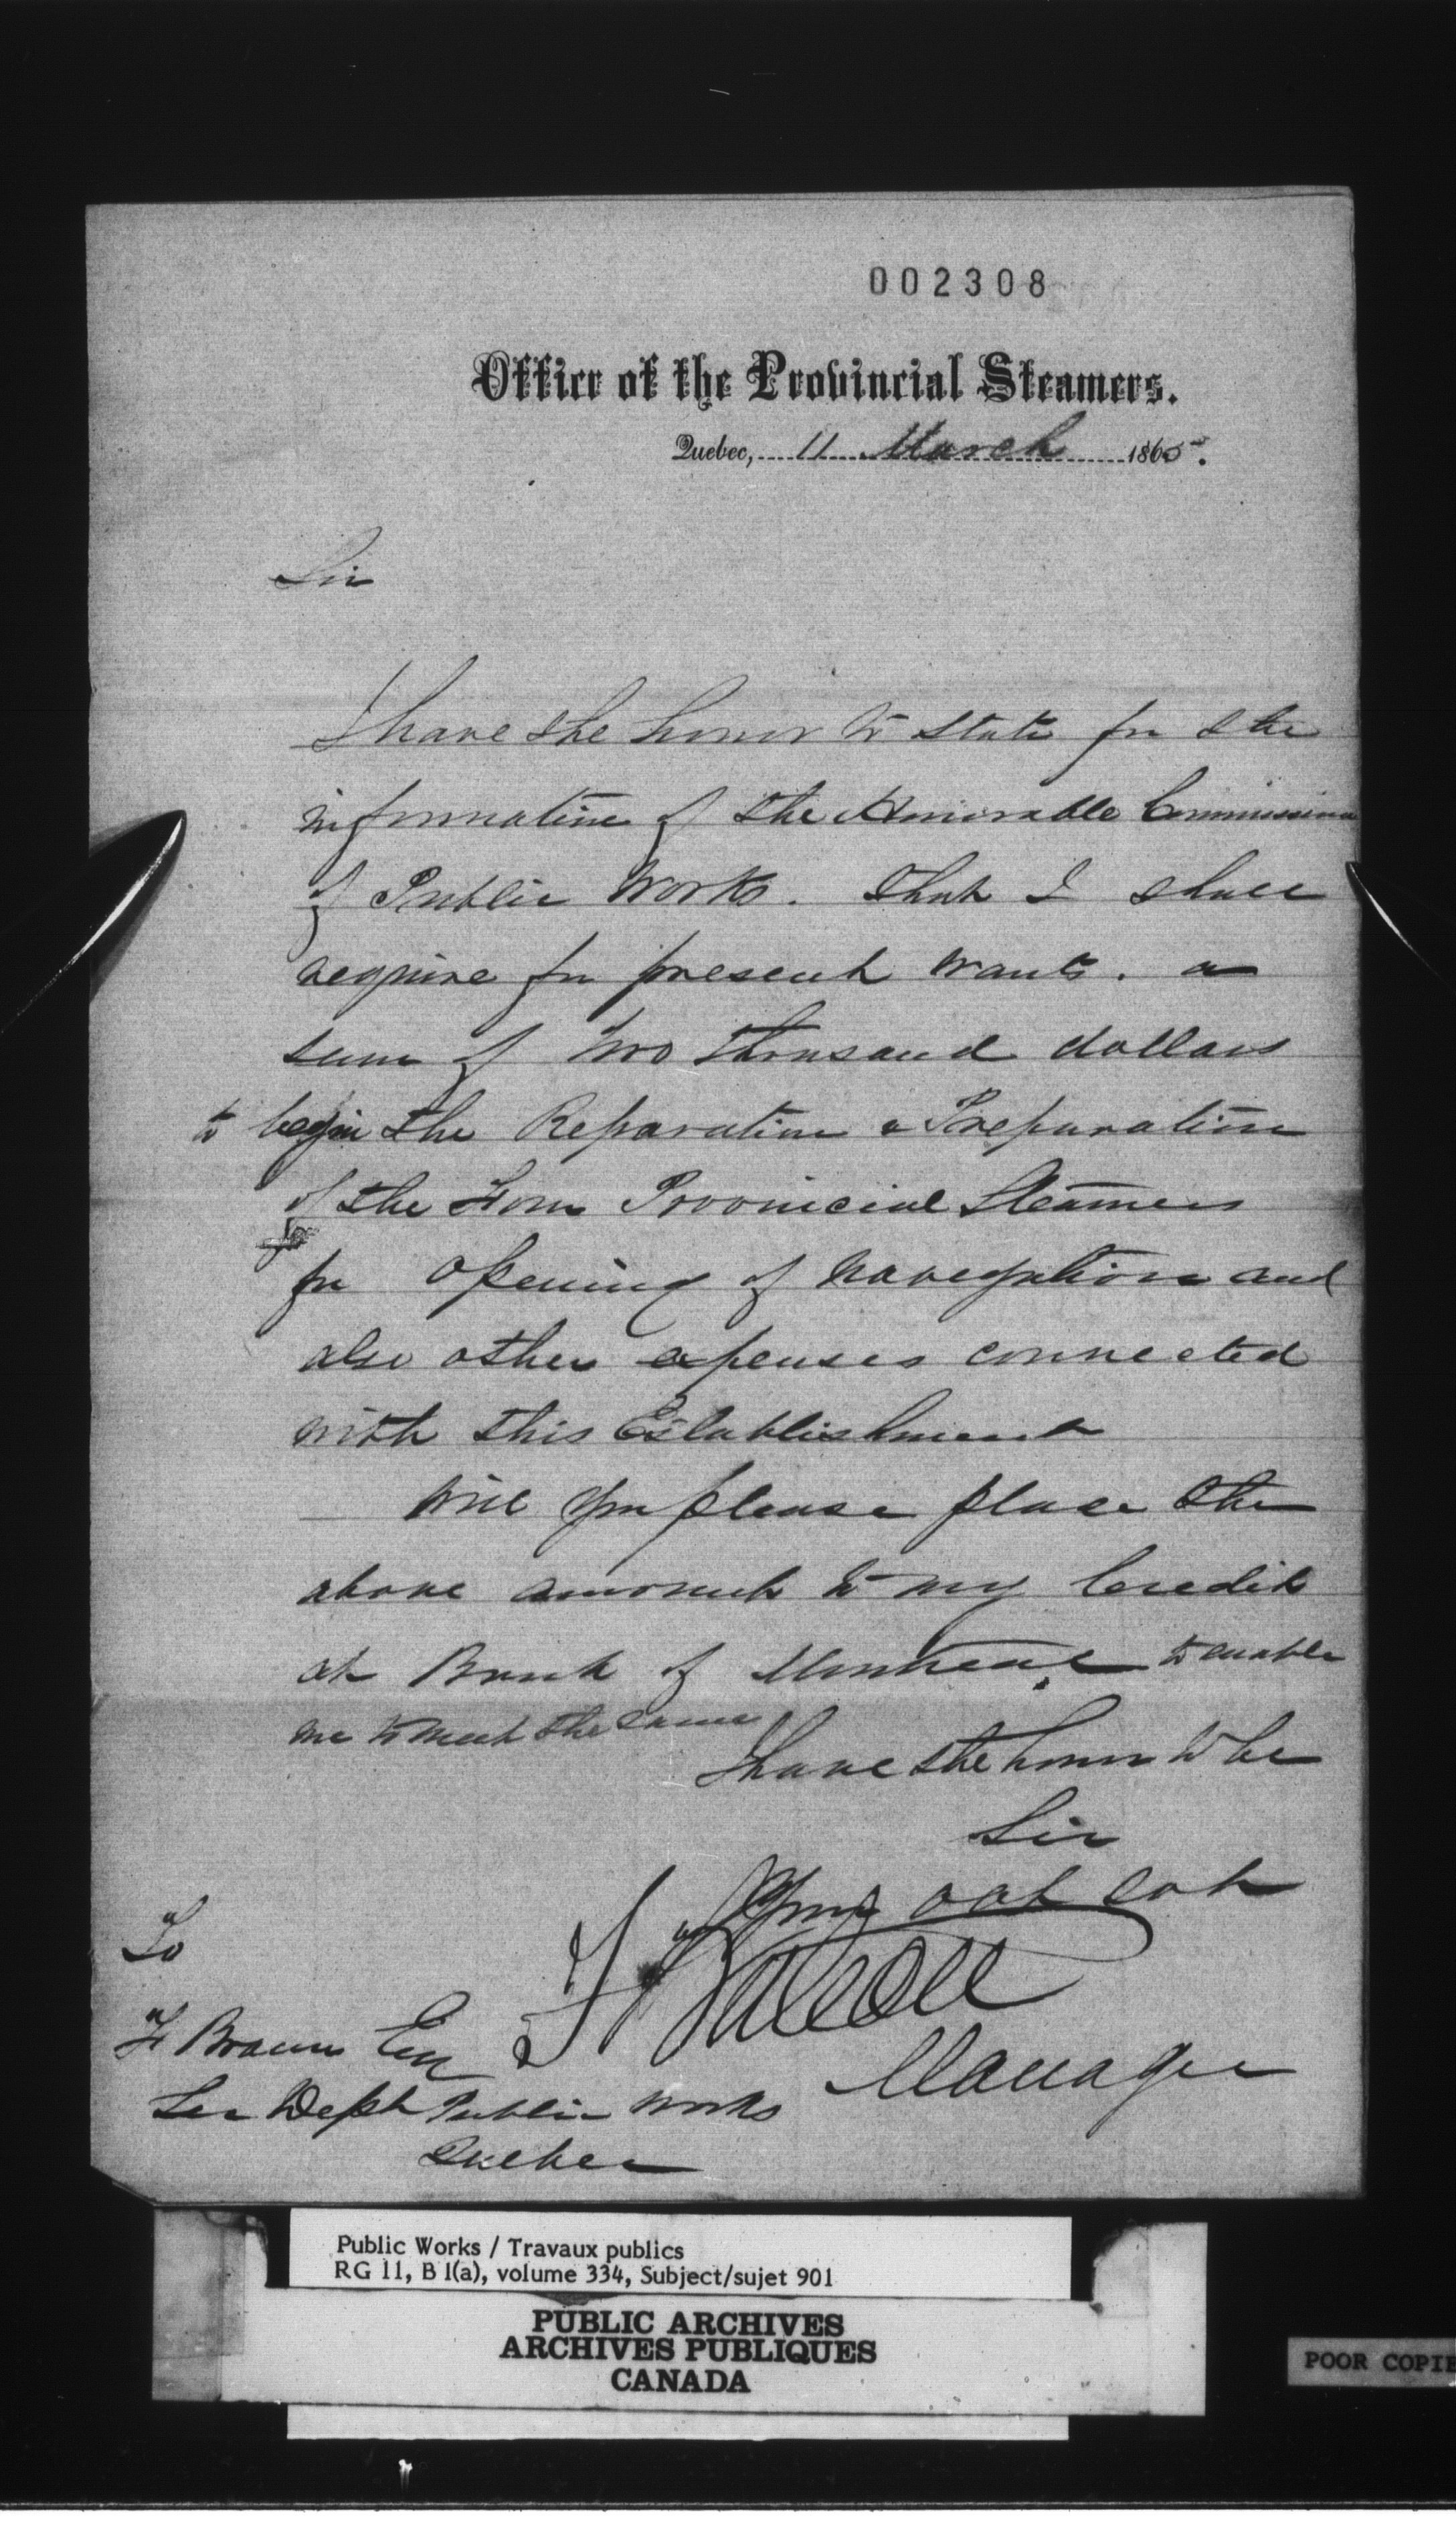 002308
Office of the Provincial Steamers.
Quebec, 11 March 1865.
Sir
I have the honor to state for the
information of the Honorable Commissioner
of Public Works. that I shall
require for present wants. a
sum of two thousand dollars
to begin the Reparation & Preparation
of the Four Provincial Steamers
for opening of navegation and
also other expenses connected
with this Establishment
Will you please place the
above amount to my Credit
at Bank of Montreal to enable
me to meet the same
I have the honor to be
Sir
Your obt sevt
F Buteau
Manager
To
F Braun Esq
Sec Dept Public Works
Quebec
Public Works / Travaux publics
RG 11, B 1(a), volume 334, Subject/sujet 901
PUBLIC ARCHIVES
ARCHIVES PUBLIQUES
CANADA
POOR COPIE